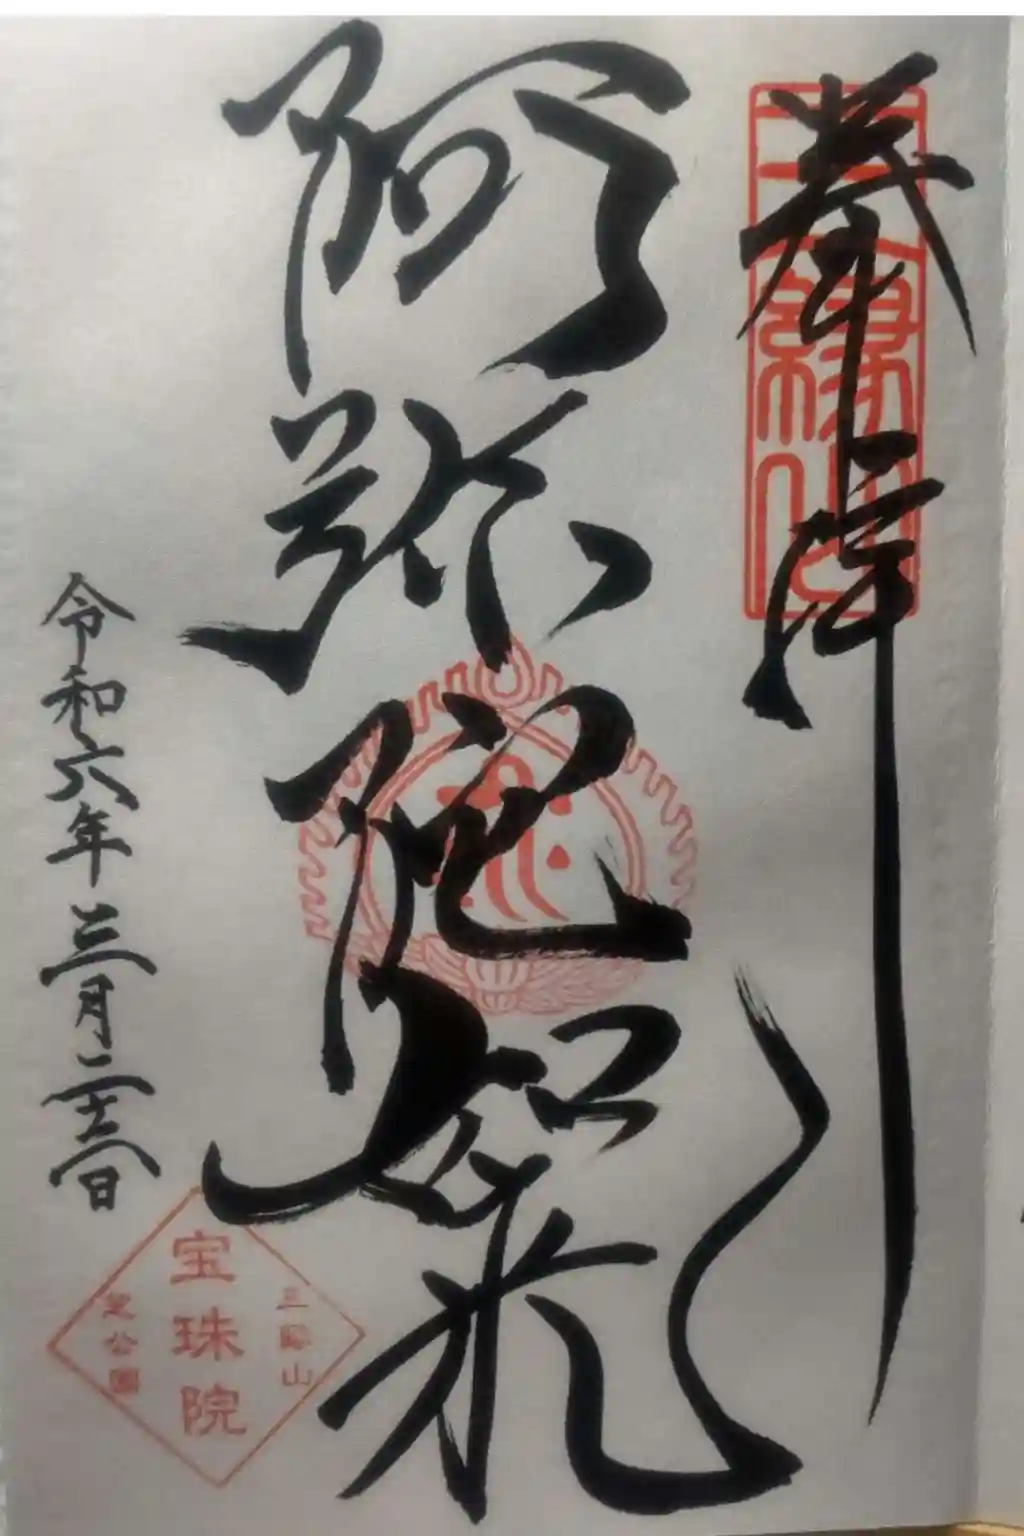 奉拝
三縁山
阿弥陀如来
令和六年三月
三縁山
宝珠院
芝公園